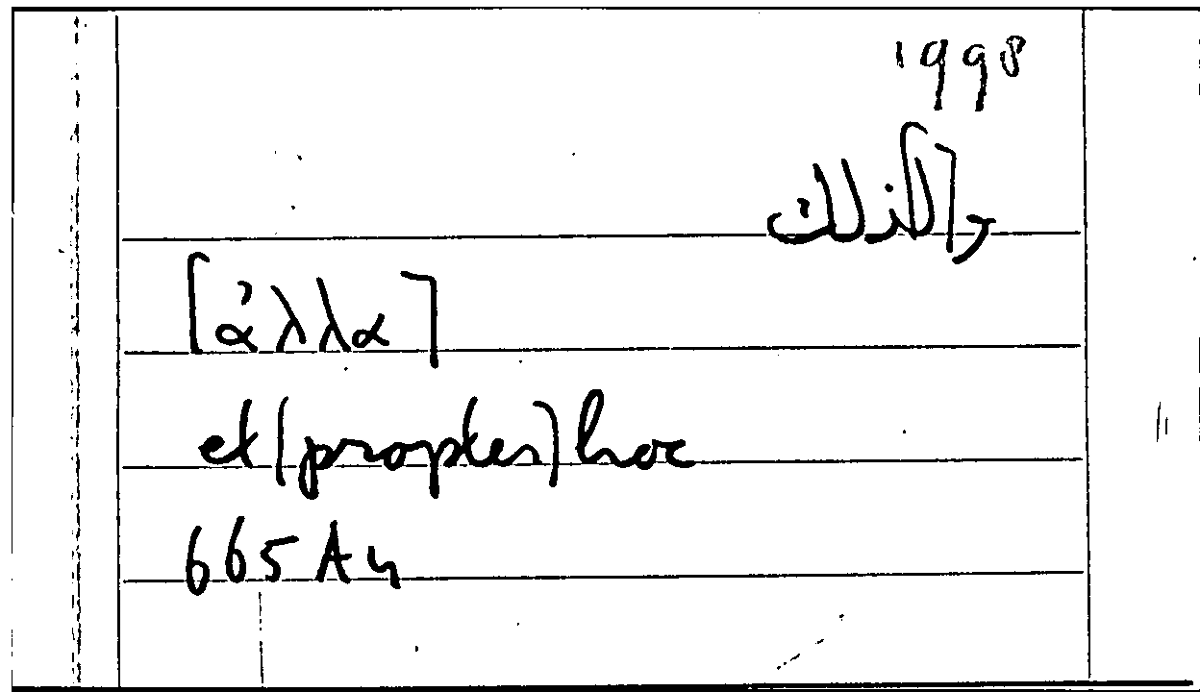 1998
و[ا]لذلك
[ἀλλα]
et (propter) hoc
665 A4